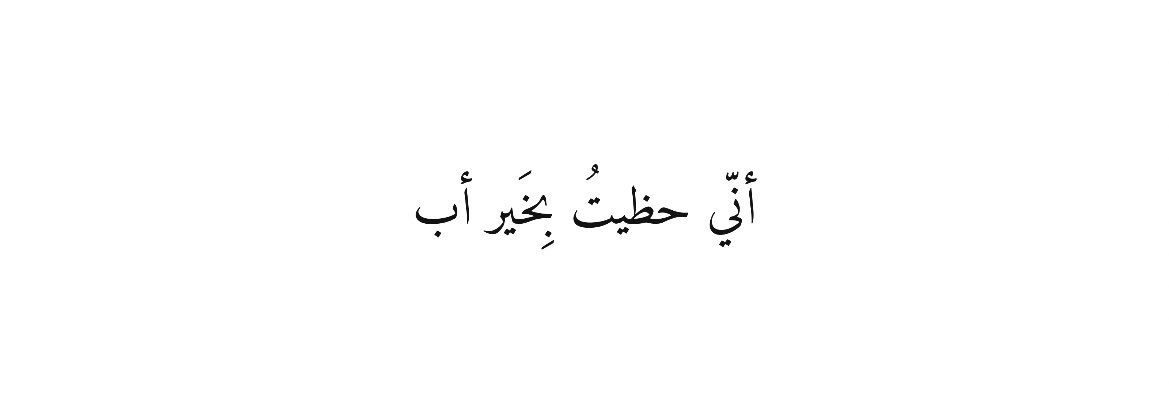 أنّي حظيتُ بِخَير أب